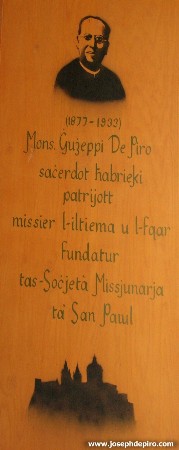 (1877-1933)
Mons. Ġużeppi De Piro
saċerdot ħabrieki
patrijott
missier l-iltiema u l-fqar
fundatur
tas-Soċjetà Missjunarja
ta' San Pawl
www.josephdepiro.com